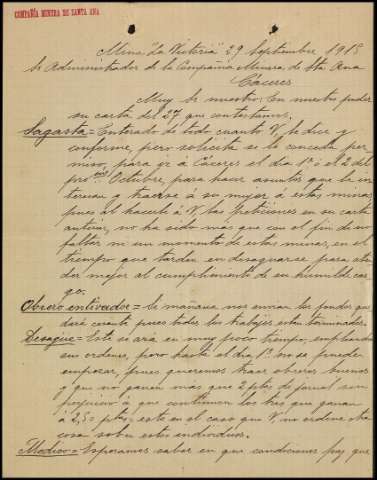 COMPAÑIA MINERA DE SANTA ANA
Mina La Victoria 29 Septiembre 1915
Sr Administrador de la Compañia Minera de Sta Ana
Cáceres
Muy Sr nuestro: En nuestro poder
su carta del 27 que contestamos.
Sagasta = Enterado de todo cuanto V, le dice y
conforme, pero solicita se le conceda per
miso, para ir á Cáceres el dia 1º ó el 2 del
proxmo Octubre, para hacer asuntos que le in
teresan y traerse á su mujer á estas minas,
pues al hacerle á V, las peticiones en su carta
anterior, no ha sido mas que con el fin de no
faltar ni un momento de estas minas, en el
tiempo que tarden en desaguarse para aten
der mejor al cumplimiento de su humilde car
go.
Obrero entivador =
pues todos los trabajos estan terminados.
Desagüe = Este se ará en muy poco tiempo, empleando
sus ordenes, pero hasta el dia 1º no se pueden
empezar, pues queremos traer obreros buenos
y que no ganen más que 2 ptas de jornal sin
perjuicio á que continuen los tres que ganan
á 2,50 ptas; este en el caso que V, no ordene otra
cosa sobre estos individuos.
Medico = Esperamos saber en que condiciones hay que